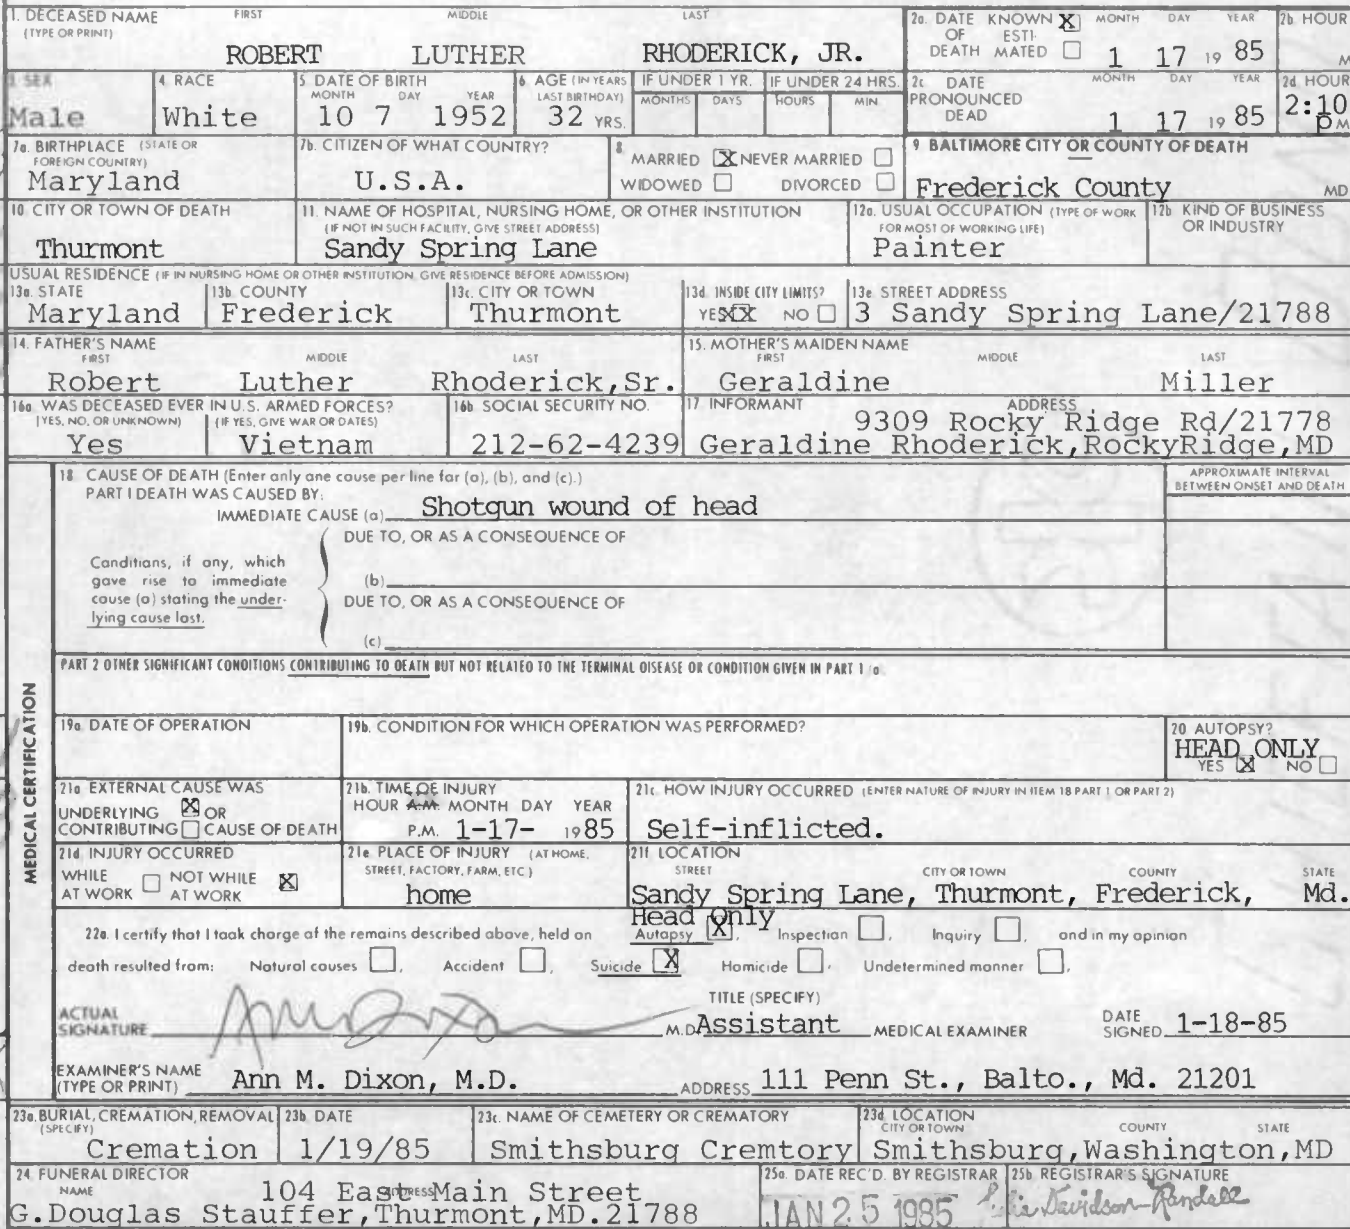 1. DECEASED NAME (TYPE OR PRINT) FIRST MIDDLE LAST
ROBERT LUTHER RHODERICK, JR.
2a. DATE OF DEATH KNOWN X ESTIMATED MONTH DAY YEAR
1 17 19 85
2b. HOUR M
3 SEX
Male
4. RACE
White
5 DATE OF BIRTH MONTH DAY YEAR
10 7 1952
6 AGE (IN YEARS LAST BIRTHDAY)
32 YRS.
IF UNDER 1 YR. MONTHS DAYS
IF UNDER 24 HRS. HOURS MIN.
2c. DATE PRONOUNCED DEAD MONTH DAY YEAR
1 17 19 85
2d HOUR
2:10 P M
7a. BIRTHPLACE (STATE OR FOREIGN COUNTRY)
Maryland
7b. CITIZEN OF WHAT COUNTRY?
U.S.A.
8 MARRIED X NEVER MARRIED
WIDOWED DIVORCED
9 BALTIMORE CITY OR COUNTY OF DEATH
Frederick County MD
10 CITY OR TOWN OF DEATH
Thurmont
11. NAME OF HOSPITAL, NURSING HOME, OR OTHER INSTITUTION
(IF NOT IN SUCH FACILITY, GIVE STREET ADDRESS)
Sandy Spring Lane
12a. USUAL OCCUPATION (TYPE OF WORK FOR MOST OF WORKING LIFE)
Painter
12b KIND OF BUSINESS OR INDUSTRY
USUAL RESIDENCE (IF IN NURSING HOME OR OTHER INSTITUTION, GIVE RESIDENCE BEFORE ADMISSION)
13a. STATE
Maryland
13b. COUNTY
Frederick
13c. CITY OR TOWN
Thurmont
13d. INSIDE CITY LIMITS?
YES XX NO
13e STREET ADDRESS
3 Sandy Spring Lane/21788
14. FATHER'S NAME FIRST MIDDLE LAST
Robert Luther Rhoderick,Sr.
15. MOTHER'S MAIDEN NAME FIRST MIDDLE LAST
Geraldine Miller
16a WAS DECEASED EVER IN U.S. ARMED FORCES?
(YES, NO, OR UNKNOWN) (IF YES, GIVE WAR OR DATES)
Yes Vietnam
16b SOCIAL SECURITY NO.
212-62-4239
17 INFORMANT ADDRESS
9309 Rocky Ridge Rd/21778
Geraldine Rhoderick,RockyRidge,MD
MEDICAL CERTIFICATION
18 CAUSE OF DEATH (Enter only one cause per line for (a), (b), and (c).)
PART I DEATH WAS CAUSED BY:
IMMEDIATE CAUSE (a) Shotgun wound of head
APPROXIMATE INTERVAL BETWEEN ONSET AND DEATH
DUE TO, OR AS A CONSEQUENCE OF
Conditions, if any, which
gave rise to immediate
cause (a) stating the under-
lying cause last.
(b)
DUE TO, OR AS A CONSEQUENCE OF
(c)
PART 2 OTHER SIGNIFICANT CONDITIONS CONTRIBUTING TO DEATH BUT NOT RELATED TO THE TERMINAL DISEASE OR CONDITION GIVEN IN PART 1 a
19a. DATE OF OPERATION
19b. CONDITION FOR WHICH OPERATION WAS PERFORMED?
20 AUTOPSY?
HEAD ONLY
YES X NO
21a EXTERNAL CAUSE WAS
UNDERLYING X OR
CONTRIBUTING CAUSE OF DEATH
21b. TIME OF INJURY
HOUR A.M. MONTH DAY YEAR
P.M. 1-17- 1985
21c HOW INJURY OCCURRED (ENTER NATURE OF INJURY IN ITEM 18 PART 1 OR PART 2)
Self-inflicted.
21d INJURY OCCURRED
WHILE AT WORK NOT WHILE AT WORK X
21e PLACE OF INJURY (AT HOME, STREET, FACTORY, FARM, ETC.)
home
21f LOCATION
STREET CITY OR TOWN COUNTY STATE
Sandy Spring Lane, Thurmont, Frederick, Md.
Head Only
22a. I certify that I took charge of the remains described above, held an Autopsy X, Inspection , Inquiry , and in my opinion
death resulted from: Natural causes , Accident , Suicide X Homicide , Undetermined manner ,
ACTUAL SIGNATURE Ann Dixon M.D. TITLE (SPECIFY) Assistant MEDICAL EXAMINER DATE SIGNED 1-18-85
EXAMINER'S NAME (TYPE OR PRINT) Ann M. Dixon, M.D. ADDRESS 111 Penn St., Balto., Md. 21201
23a. BURIAL, CREMATION, REMOVAL (SPECIFY)
Cremation
23b. DATE
1/19/85
23c. NAME OF CEMETERY OR CREMATORY
Smithsburg Cremtory
23d. LOCATION
CITY OR TOWN COUNTY STATE
Smithsburg,Washington,MD
24 FUNERAL DIRECTOR
NAME ADDRESS
104 East Main Street
G.Douglas Stauffer,Thurmont,MD.21788
25a. DATE REC'D. BY REGISTRAR
JAN 25 1985
25b REGISTRAR'S SIGNATURE
Davidson-Randall